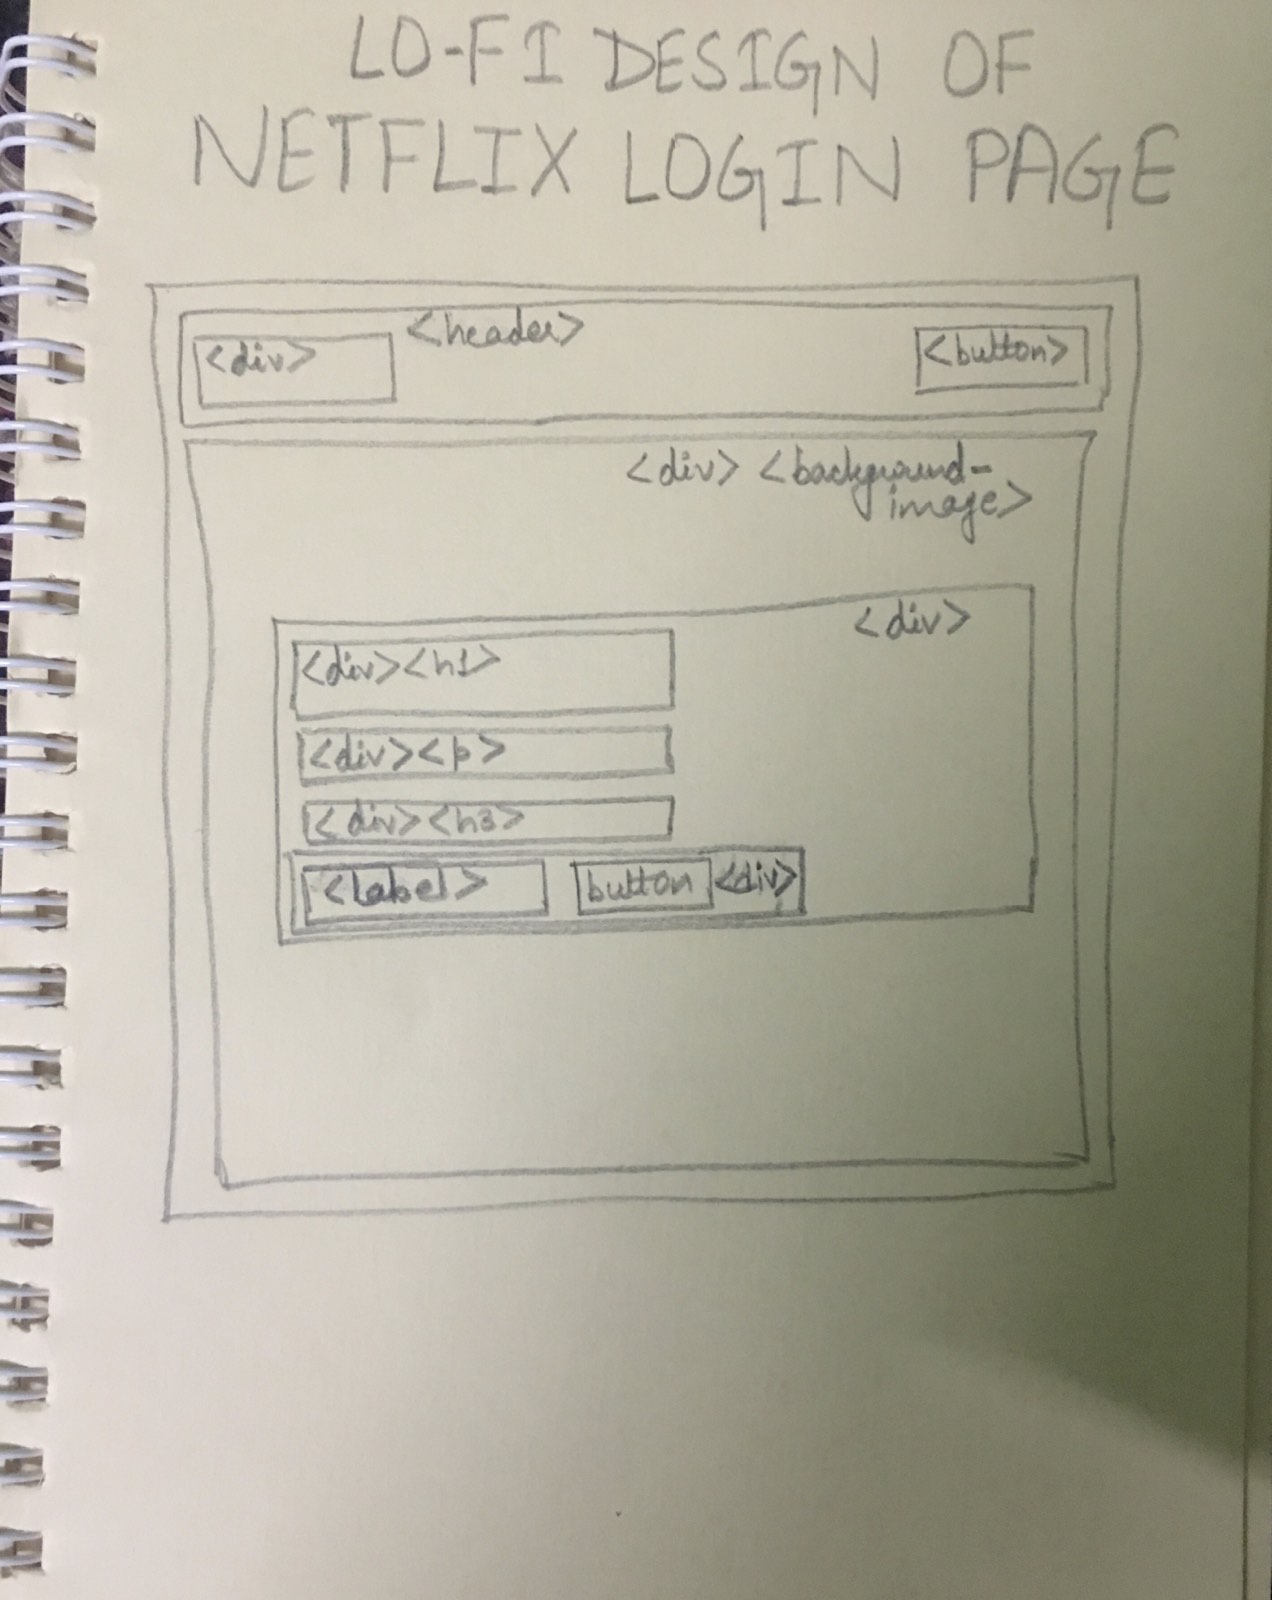 LO-FI DESIGN OF
NETFLIX LOGIN PAGE
<header>
<div>
<button>
<div> <background-
image>
<div>
<div><h1>
<div><p>
<div><h3>
<label>
button
<div>